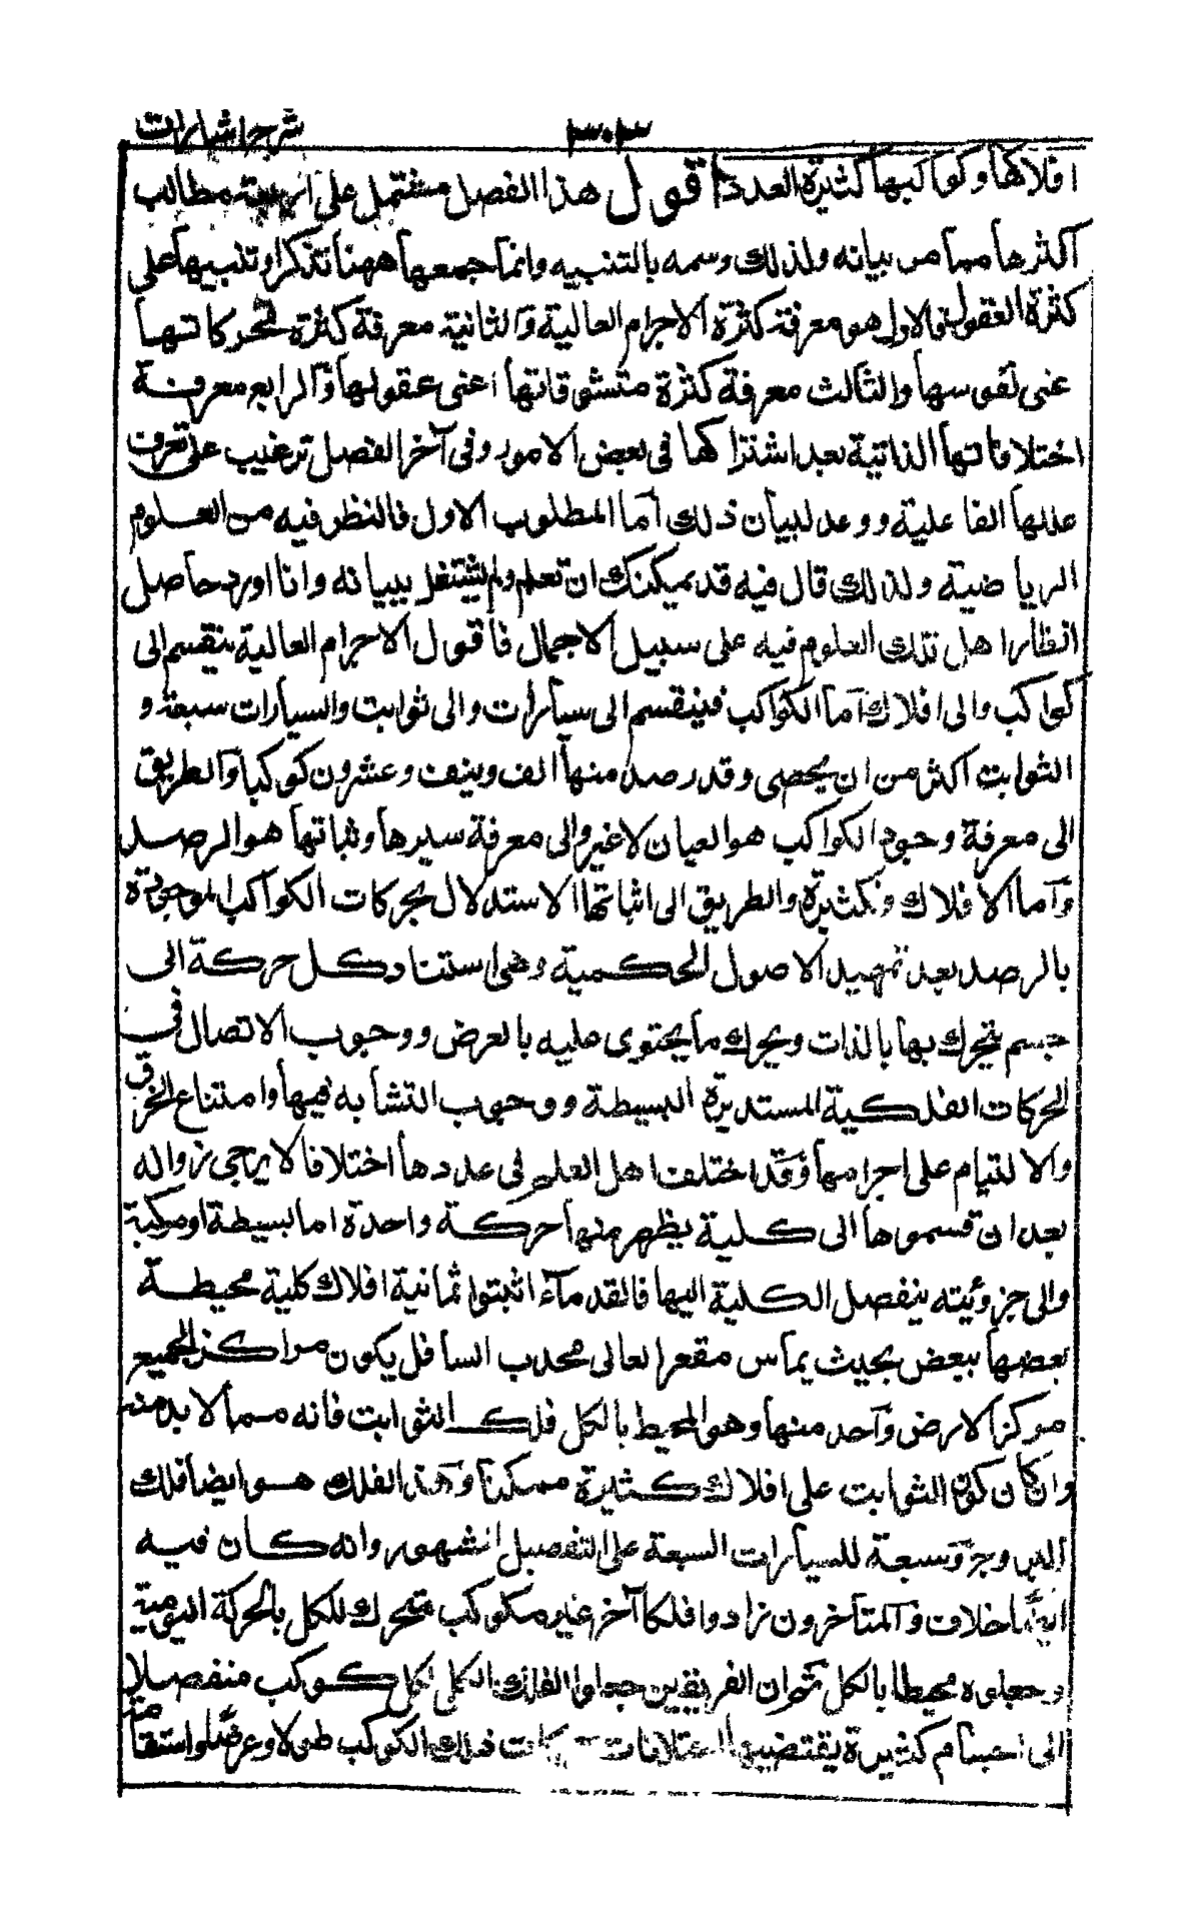 شرح اشارات ٣٠٢
افلاكها وكواكبها كثيرة العدد اقول هذا الفصل مشتمل على اربعة مطالب
اكثرها مما مر بيانه ولذلك وسمه بالتنبيه وانما جمعها ههنا تذكرا وتنبيها على
كثرة العقول فالاول هو معرفة كثرة الاجرام العالية والثانية معرفة كثرة محركاتها
عنى نفوسها والثالث معرفة كثرة متشوقاتها اعنى عقولها والرابع معرفة
اختلافاتها الذاتية بعد اشتراكها فى بعض الامور وفى آخر الفصل ترغيب على تعرف
عللها الفاعلية ووعد لبيان ذلك اما المطلوب الاول فالنظر فيه من العلوم
الرياضية ولذلك قال فيه قد يمكنك ان تعلم ولم يشتغل ببيانه وانا اورد حاصل
انظار اهل تلك العلوم فيه على سبيل الاجمال فاقول الاجرام العالية ينقسم الى
كواكب والى افلاك اما الكواكب فينقسم الى سيارات والى ثوابت والسيارات سبعة و
الثوابت اكثر من ان يحصى وقد رصد منها الف ونيف وعشرون كوكبا والطريق
الى معرفة وجود الكواكب هو العيان لا غير والى معرفة سيرها وثباتها هو الرصد
واما الافلاك فكثيرة والطريق الى اثباتها الاستدلال بحركات الكواكب الموجودة
بالرصد بعد تمهيد الاصول الحكمية وهى استناد كل حركة الى
جسم يتحرك بها بالذات ويحرك ما يحتوى عليه بالعرض ووجوب الاتصال فى
الحركات الفلكية المستديرة البسيطة ووجوب التشابه فيها وامتناع الخرق
والالتيام على اجرامها وقد اختلف اهل العلم فى عددها اختلافا لا يرجى زواله
بعد ان قسموها الى كلية يظهر منها حركة واحدة اما بسيطة او مركبة
والى جزوئيته ينفصل الكلية اليها فالقدماء اثبتوا ثمانية افلاك كلية محيطة
بعضها ببعض بحيث يماس مقعر العالى محدب السافل يكون مراكز الجميع
مركز الارض واحد منها وهو المحيط بالكل فلك الثوابت فانه مما لا بد منه
وان كان كون الثوابت على افلاك كثيرة ممكنا وهذا الفلك هو ايضا فلك
البروج وسبعة للسيارات السبعة على التفصيل المشهور وانه كان فيه
ايضا خلاف والمتأخرون زادوا فلكا آخر غير مكوكب متحرك للكل بالحركة اليومية
وجعلوه محيطا بالكل ثم ان الفريقين جعلوا الفلك الكلى لكل كوكب منفصلا
الى اجسام كثيرة يقتضيها اختلافات ذلك الكوكب طولا وعرضا واستقامة